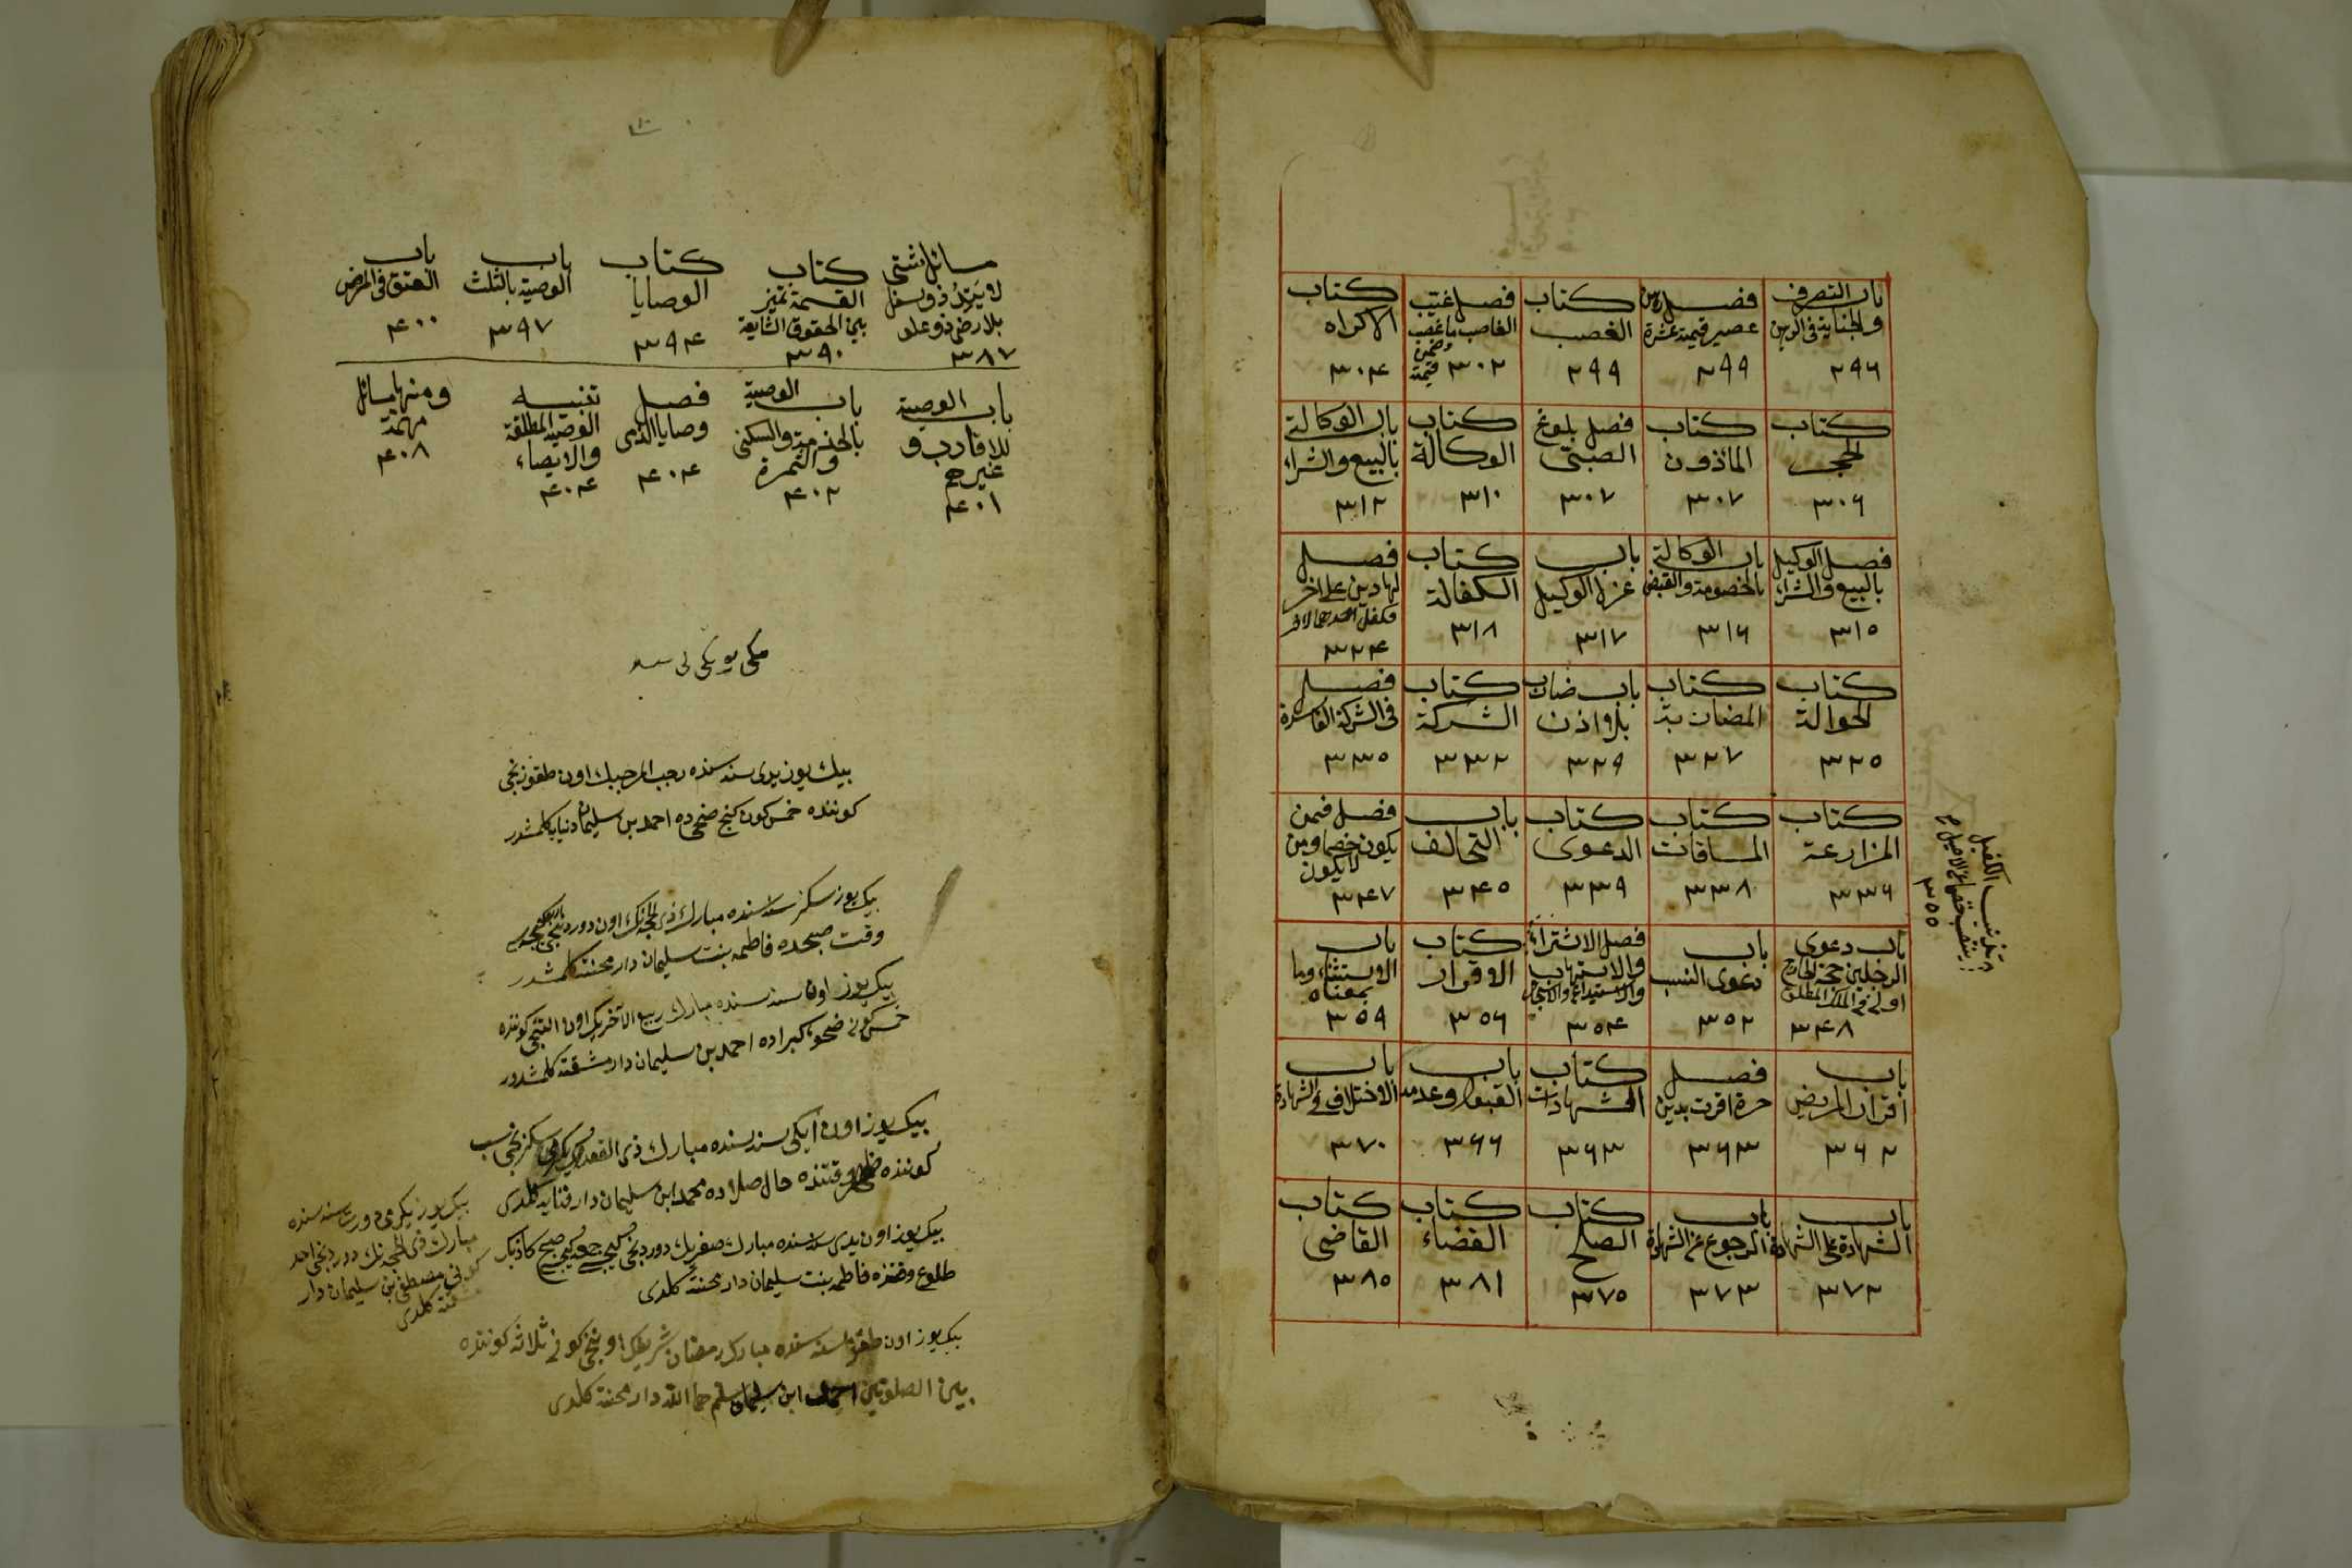 باب التصرف
والجناية فى الرهن
٢٩٦
فصل رهن
عصير قيمته عشرة
٢٩٩
كتاب
الغصب
٢٩٩
فصل غيب
الغاصب ما غصب
وضمن قيمته
٣٠٢
كتاب
الاكراه
٣٠٤
كتاب
الحجر
٣٠٦
كتاب
الماذون
٣٠٧
فصل بلوغ
الصبى
٣٠٧
كتاب
الوكالة
٣١٠
باب الوكالة
بالبيع والشراء
٣١٢
فصل الوكيل
بالبيع والشراء
٣١٥
باب الوكالة
بالخصومة والقبض
٣١٦
باب
عزل الوكيل
٣١٧
كتاب
الكفالة
٣١٨
فصل
لهما دين على اخر
٣٢٤
كتاب
الحوالة
٣٢٥
كتاب
المضاربة
٣٢٧
باب ضارب
بلا اذن
٣٢٩
كتاب
الشركة
٣٣٢
فصل
فى الشركة الفاسدة
٣٣٥
كتاب
المزارعة
٣٣٦
كتاب
المساقات
٣٣٨
كتاب
الدعوى
٣٣٩
باب
التحالف
٣٤٥
فصل فيمن
يكون خصما ومن
لا يكون
٣٤٧
باب دعوى
الرجلين حجة الخارج
اولى فى الملك المطلق
٣٤٨
باب
دعوى النسب
٣٥٢
فصل الاشتراء
والاستيهاب
والاستيداع والاستيجار
٣٥٤
كتاب
الاقرار
٣٥٦
باب
الاستثناء وما
بمعناه
٣٥٩
باب
اقرار المريض
٣٦٢
فصل
حرة اقرت بدين
٣٦٣
كتاب
الشهادات
٣٦٣
باب
القبول وعدمه
٣٦٦
باب
الاختلاف فى الشهادة
٣٧٠
باب
الشهادة على الشهادة
٣٧٢
باب
الرجوع عن الشهادة
٣٧٣
كتاب
الصلح
٣٧٥
كتاب
القضاء
٣٨١
كتاب
القاضى
٣٨٥
٣٥٥
مسائل شتى
لا يتد ذو سفل
بلا رضى ذو علو
٣٨٧
كتاب
القسمة تميز
بين الحقوق الشايعة
٣٩٠
كتاب
الوصايا
٣٩٤
باب
الوصية بالثلث
٣٩٧
باب
العتق فى المرض
٤٠٠
باب الوصية
للاقارب و
غيرهم
٤٠١
باب الوصية
بالخدمة والسكنى
والثمرة
٤٠٢
فصل
وصايا الذمى
٤٠٤
تنبيه
الوصية المطلقة
والايصاء
٤٠٤
ومنها مسائل
مهمة
٤٠٨
بيك يوز يدى سنه سنده رجب المرجبك اون طقوزنجى
كوننده خمس كون ضحى ده احمد بن سليمان دنيايه كلمشدر
بيك يوز سكز سنه سنده مبارك ذى الحجه نك اون دوردنجى
وقت صبحده فاطمه بنت سليمان دار محنته كلمشدر
بيك يوز اون سنه سنده مبارك ربيع الآخرك اون التنجى كوننده
خمس كونى ضحوه كبراده احمد بن سليمان دار مشقته كلمشدر
بيك يوز اون ايكى سنه سنده مبارك ذى القعده
كوننده وقتنده محمد ابن سليمان دار فنايه كلدى
بيك يوز اون يدى سنه سنده مبارك صفرك دوردنجى كيجه جمعه كيجه صبح كاذبك
طلوع وقتنده فاطمه بنت سليمان دار محنته كلدى
بيك يوز اون طقوز سنه سنده مبارك رمضان شريفك اوچنجى كونى ثلاثه كوننده
بين الصلوتين احمد ابن سليمان دار محنته كلدى
بيك يوز يكرمى دورت سنه سنده
مبارك ذى الحجه نك دوردنجى احد
كونى مصطفى بن سليمان دار
محنته كلدى